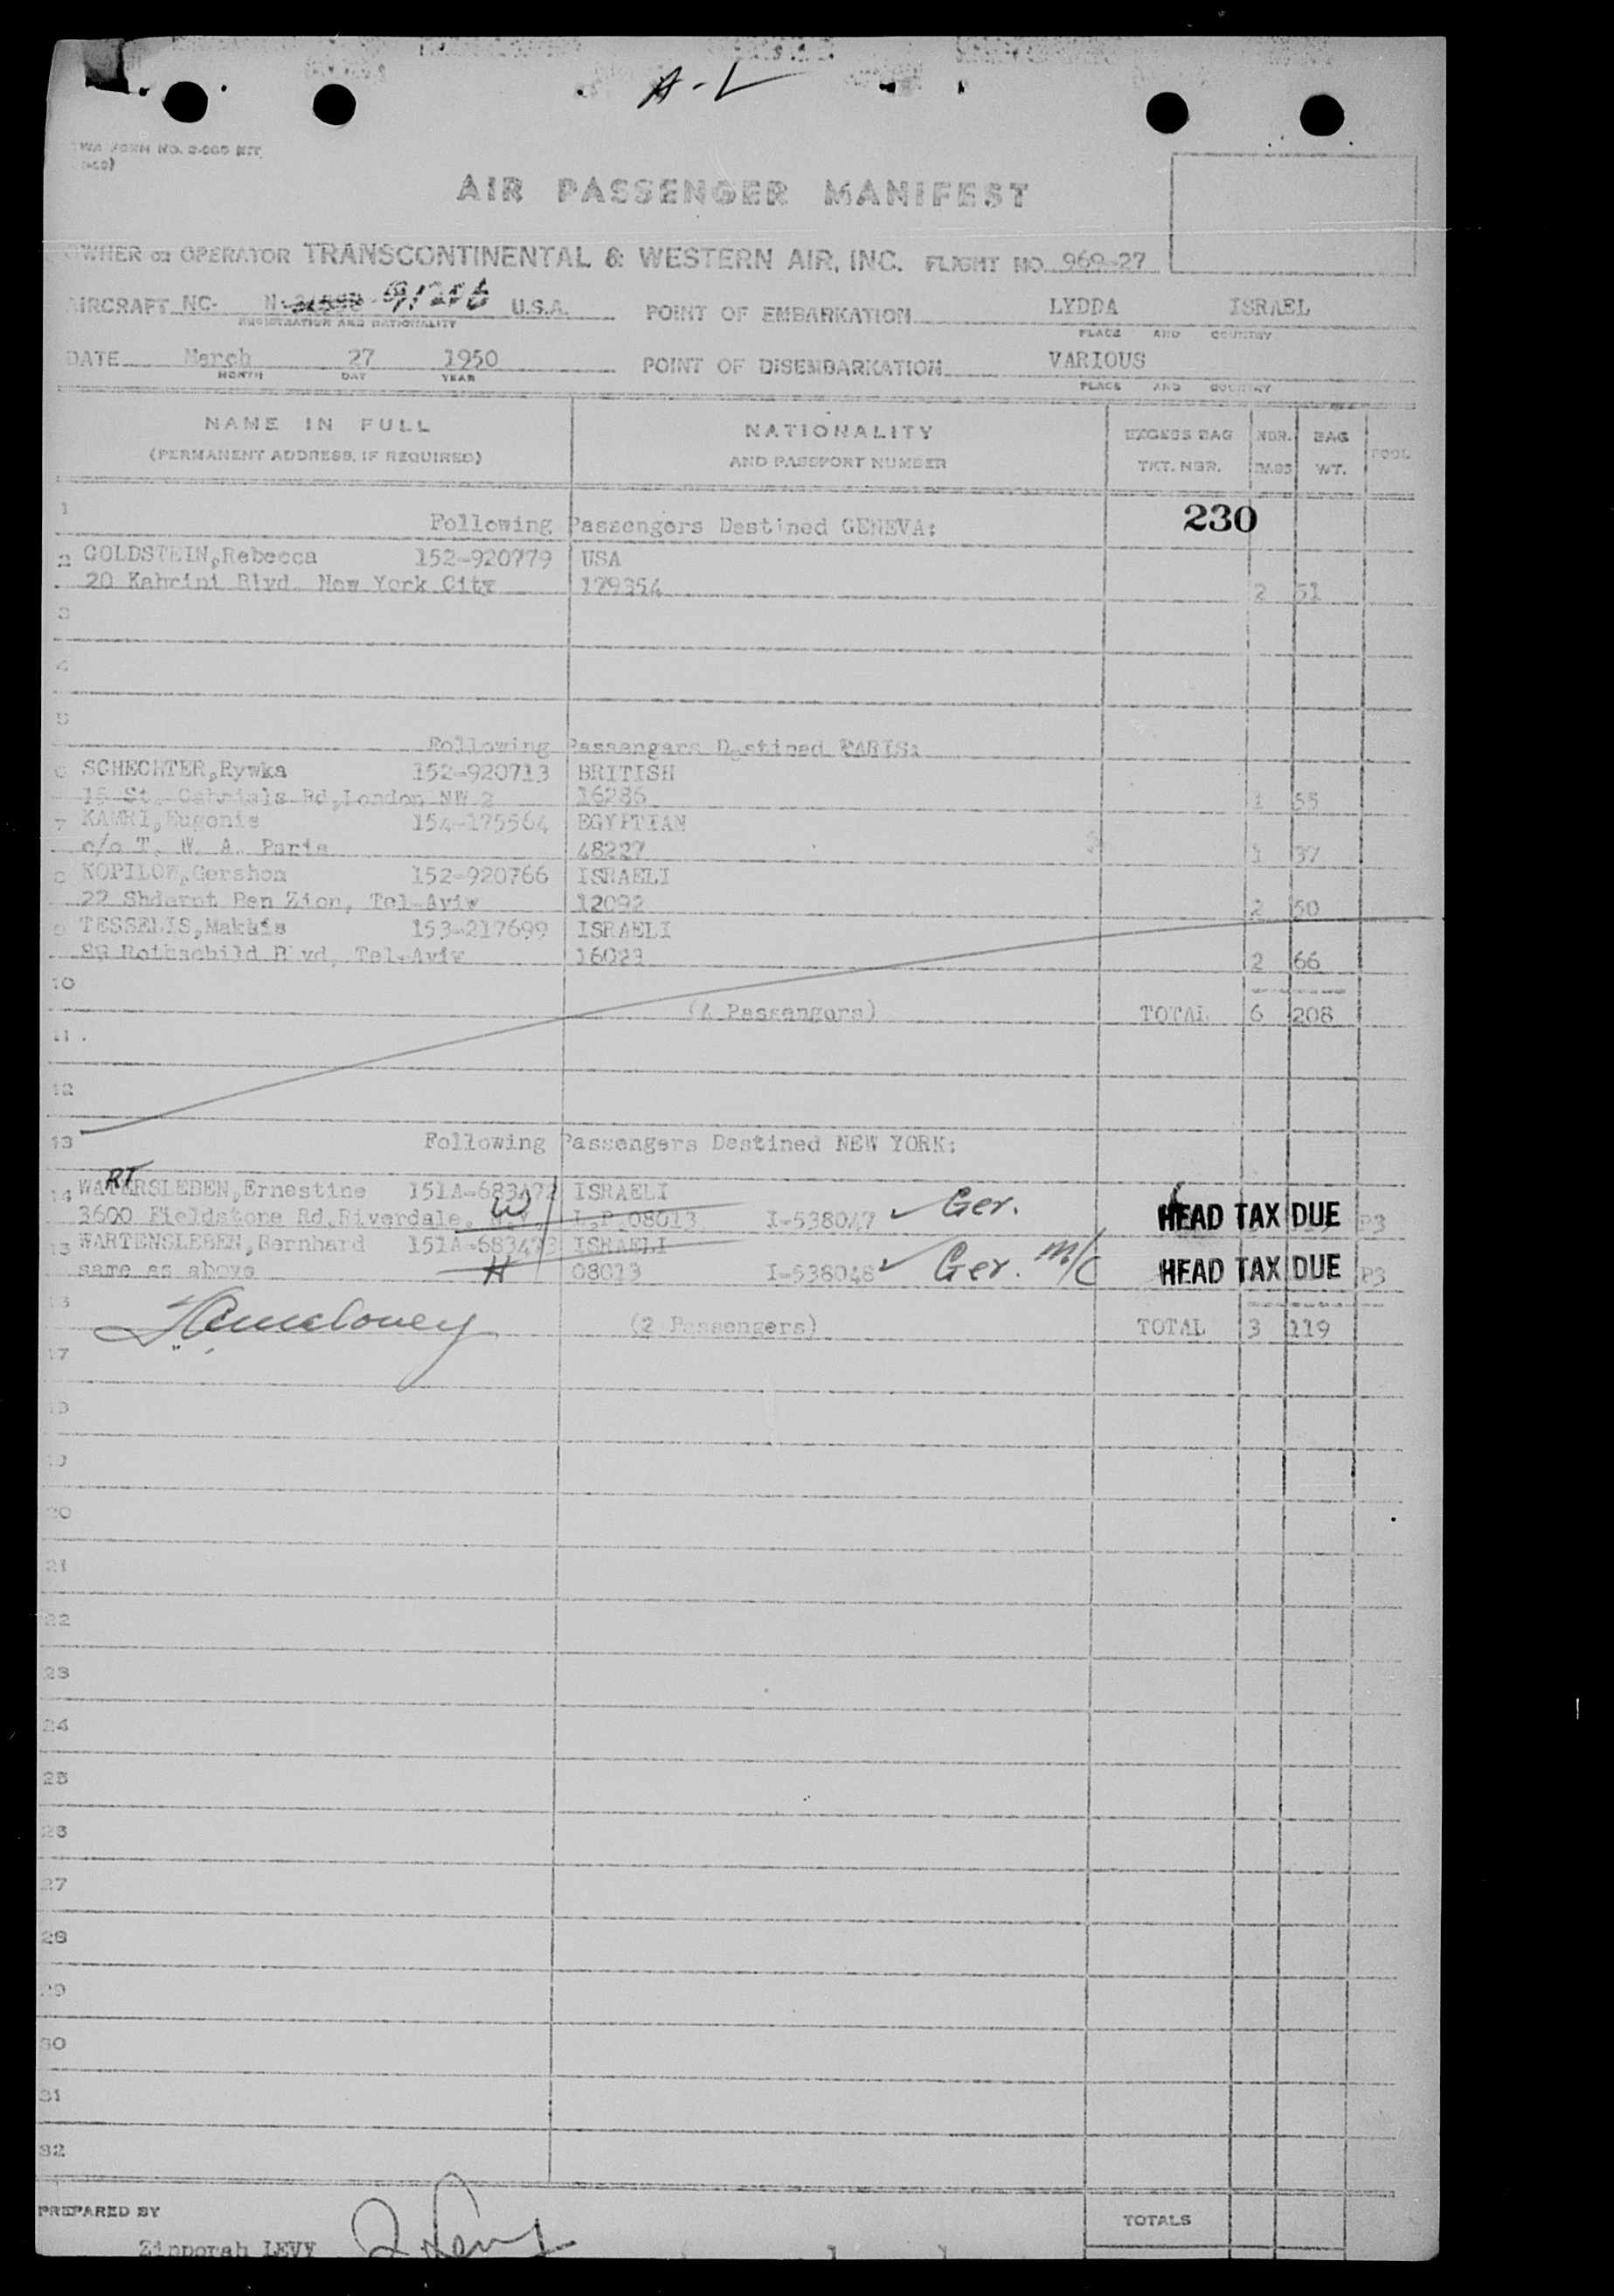 A-L
TWA FORM NO.
AIR PASSENGER MANIFEST
OWNER OR OPERATOR TRANSCONTINENTAL & WESTERN AIR, INC. FLIGHT NO. 969-27
AIRCRAFT NC- N- U.S.A. POINT OF EMBARKATION LYDDA ISRAEL
REGISTRATION AND NATIONALITY PLACE AND COUNTRY
DATE March 27 1950 POINT OF DISEMBARKATION VARIOUS
MONTH DAY YEAR PLACE AND COUNTRY
NAME IN FULL NATIONALITY EXCESS BAG NBR. BAG POOL
(PERMANENT ADDRESS, IF REQUIRED) AND PASSPORT NUMBER TKT. NBR. BAGS WT.
1 230
Following Passengers Destined GENEVA:
2 GOLDSTEIN,Rebecca 152-920779 USA
20 Kabrini Blvd. New York City 129354 2 51
3
4
5
Following Passengers Destined PARIS:
6 SCHECHTER,Rywka 152-920713 BRITISH
15 St. Gabriels Rd,London NW 2 16286 1 55
7 KAMRI,Eugenie 154-175564 EGYPTIAN
c/o T. W. A. Paris 48227 1 37
8 KOPILOW,Gershon 152-920766 ISRAELI
22 Shderot Ben Zion, Tel-Aviv 12092 2 50
9 TESSELIS, 153-217699 ISRAELI
89 Rothschild Blvd, Tel-Aviv 16023 2 66
10
(4 Passengers) TOTAL 6 208
11
12
13 Following Passengers Destined NEW YORK:
RT
14 WATERSLEBEN,Ernestine 151A-683472 ISRAELI
3600 Fieldstone Rd,Riverdale, N.Y. W L.P.08013 I-538047 ✓ Ger. HEAD TAX DUE P3
15 WARTENSLEBEN,Bernhard 151A-683473 ISRAELI
same as above H 08013 I-538048 ✓ Ger. M/C HEAD TAX DUE P3
16
(2 Passengers) TOTAL 3 119
17
18
19
20
21
22
23
24
25
26
27
28
29
30
31
32
PREPARED BY TOTALS
Zipporah LEVY Z Levy